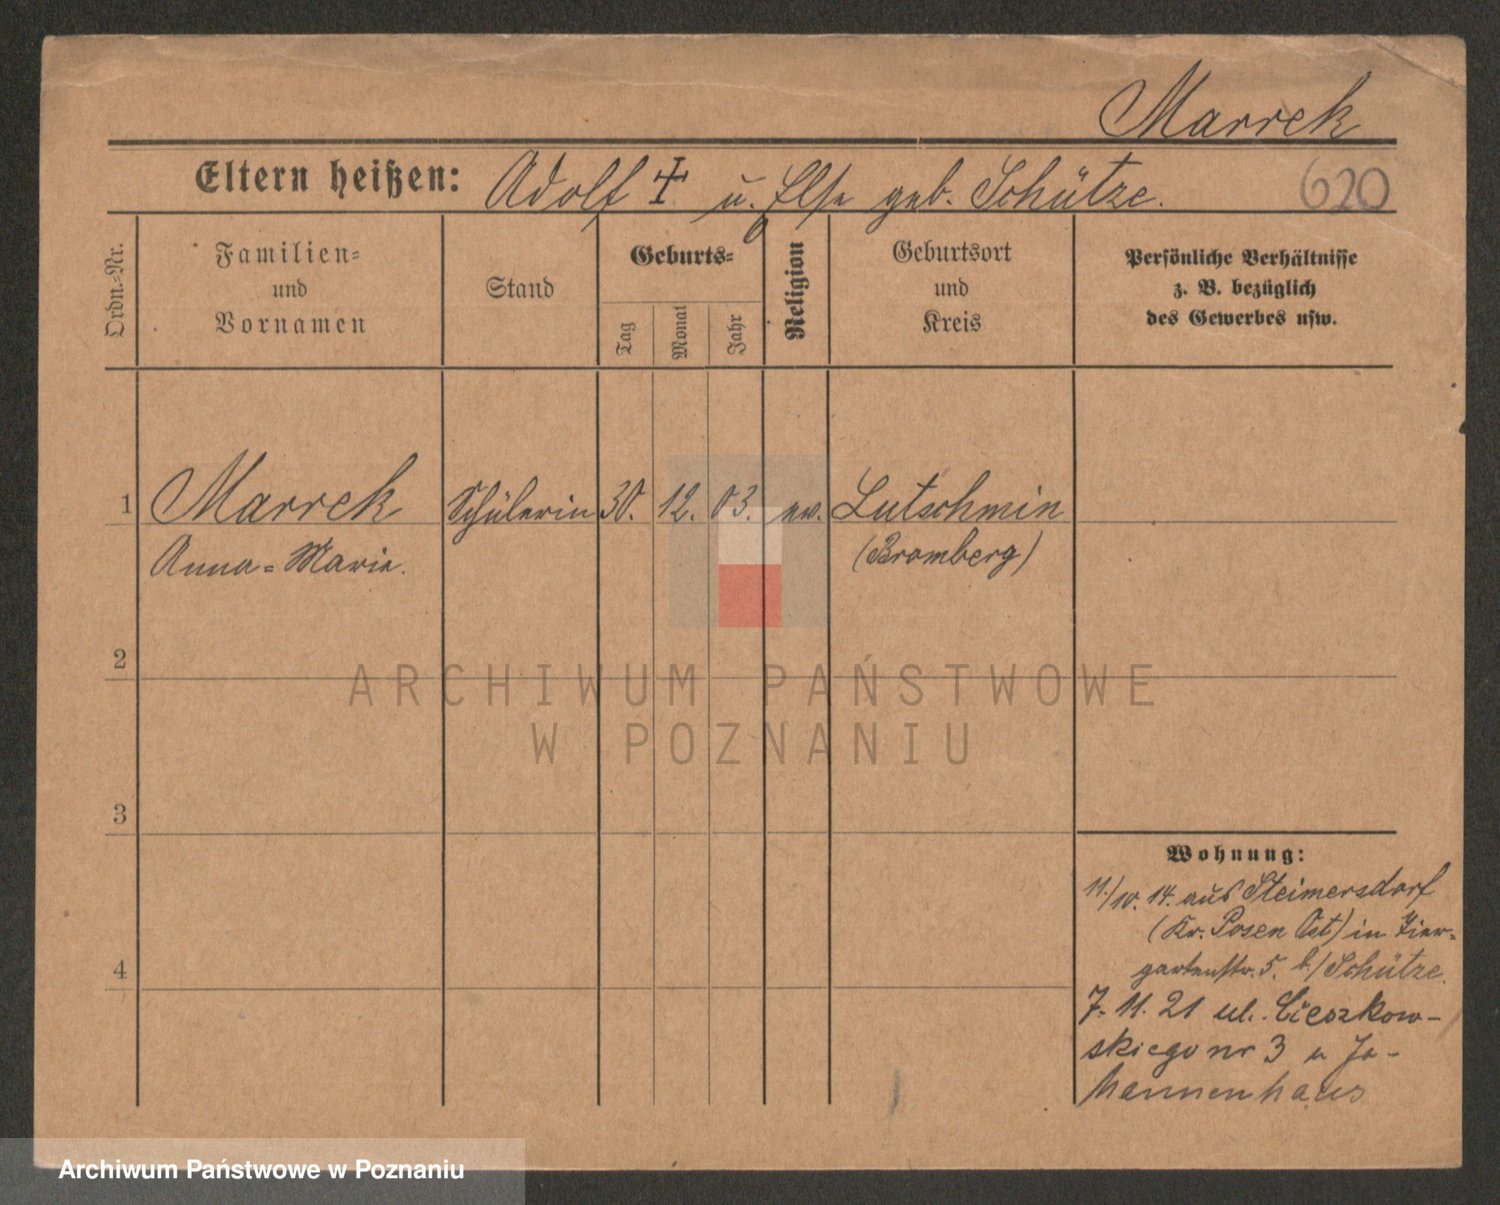 Marrek
Eltern heißen: Adolf ‡ u. Else geb. Schütze.
620
Ordn.-Nr.
Familien-
und
Vornamen
Stand
Geburts-
Tag
Monat
Jahr
Religion
Geburtsort
und
Kreis
Persönliche Verhältnisse
z. B. bezüglich
des Gewerbes usw.
1 Marrek Schülerin 30. 12. 03. ev. Lutschmin
Anna-Marie. (Bromberg)
2
ARCHIWUM PAŃSTWOWE
W POZNANIU
3
Wohnung:
11./10. 14. aus Steimersdorf
(Kr. Posen Ost) in Tier-
gartenstr. 5. b/Schütze.
4
7. 11. 21 ul. Cieszkow-
skiego nr 3 u Jo-
hannenhaus
Archiwum Państwowe w Poznaniu